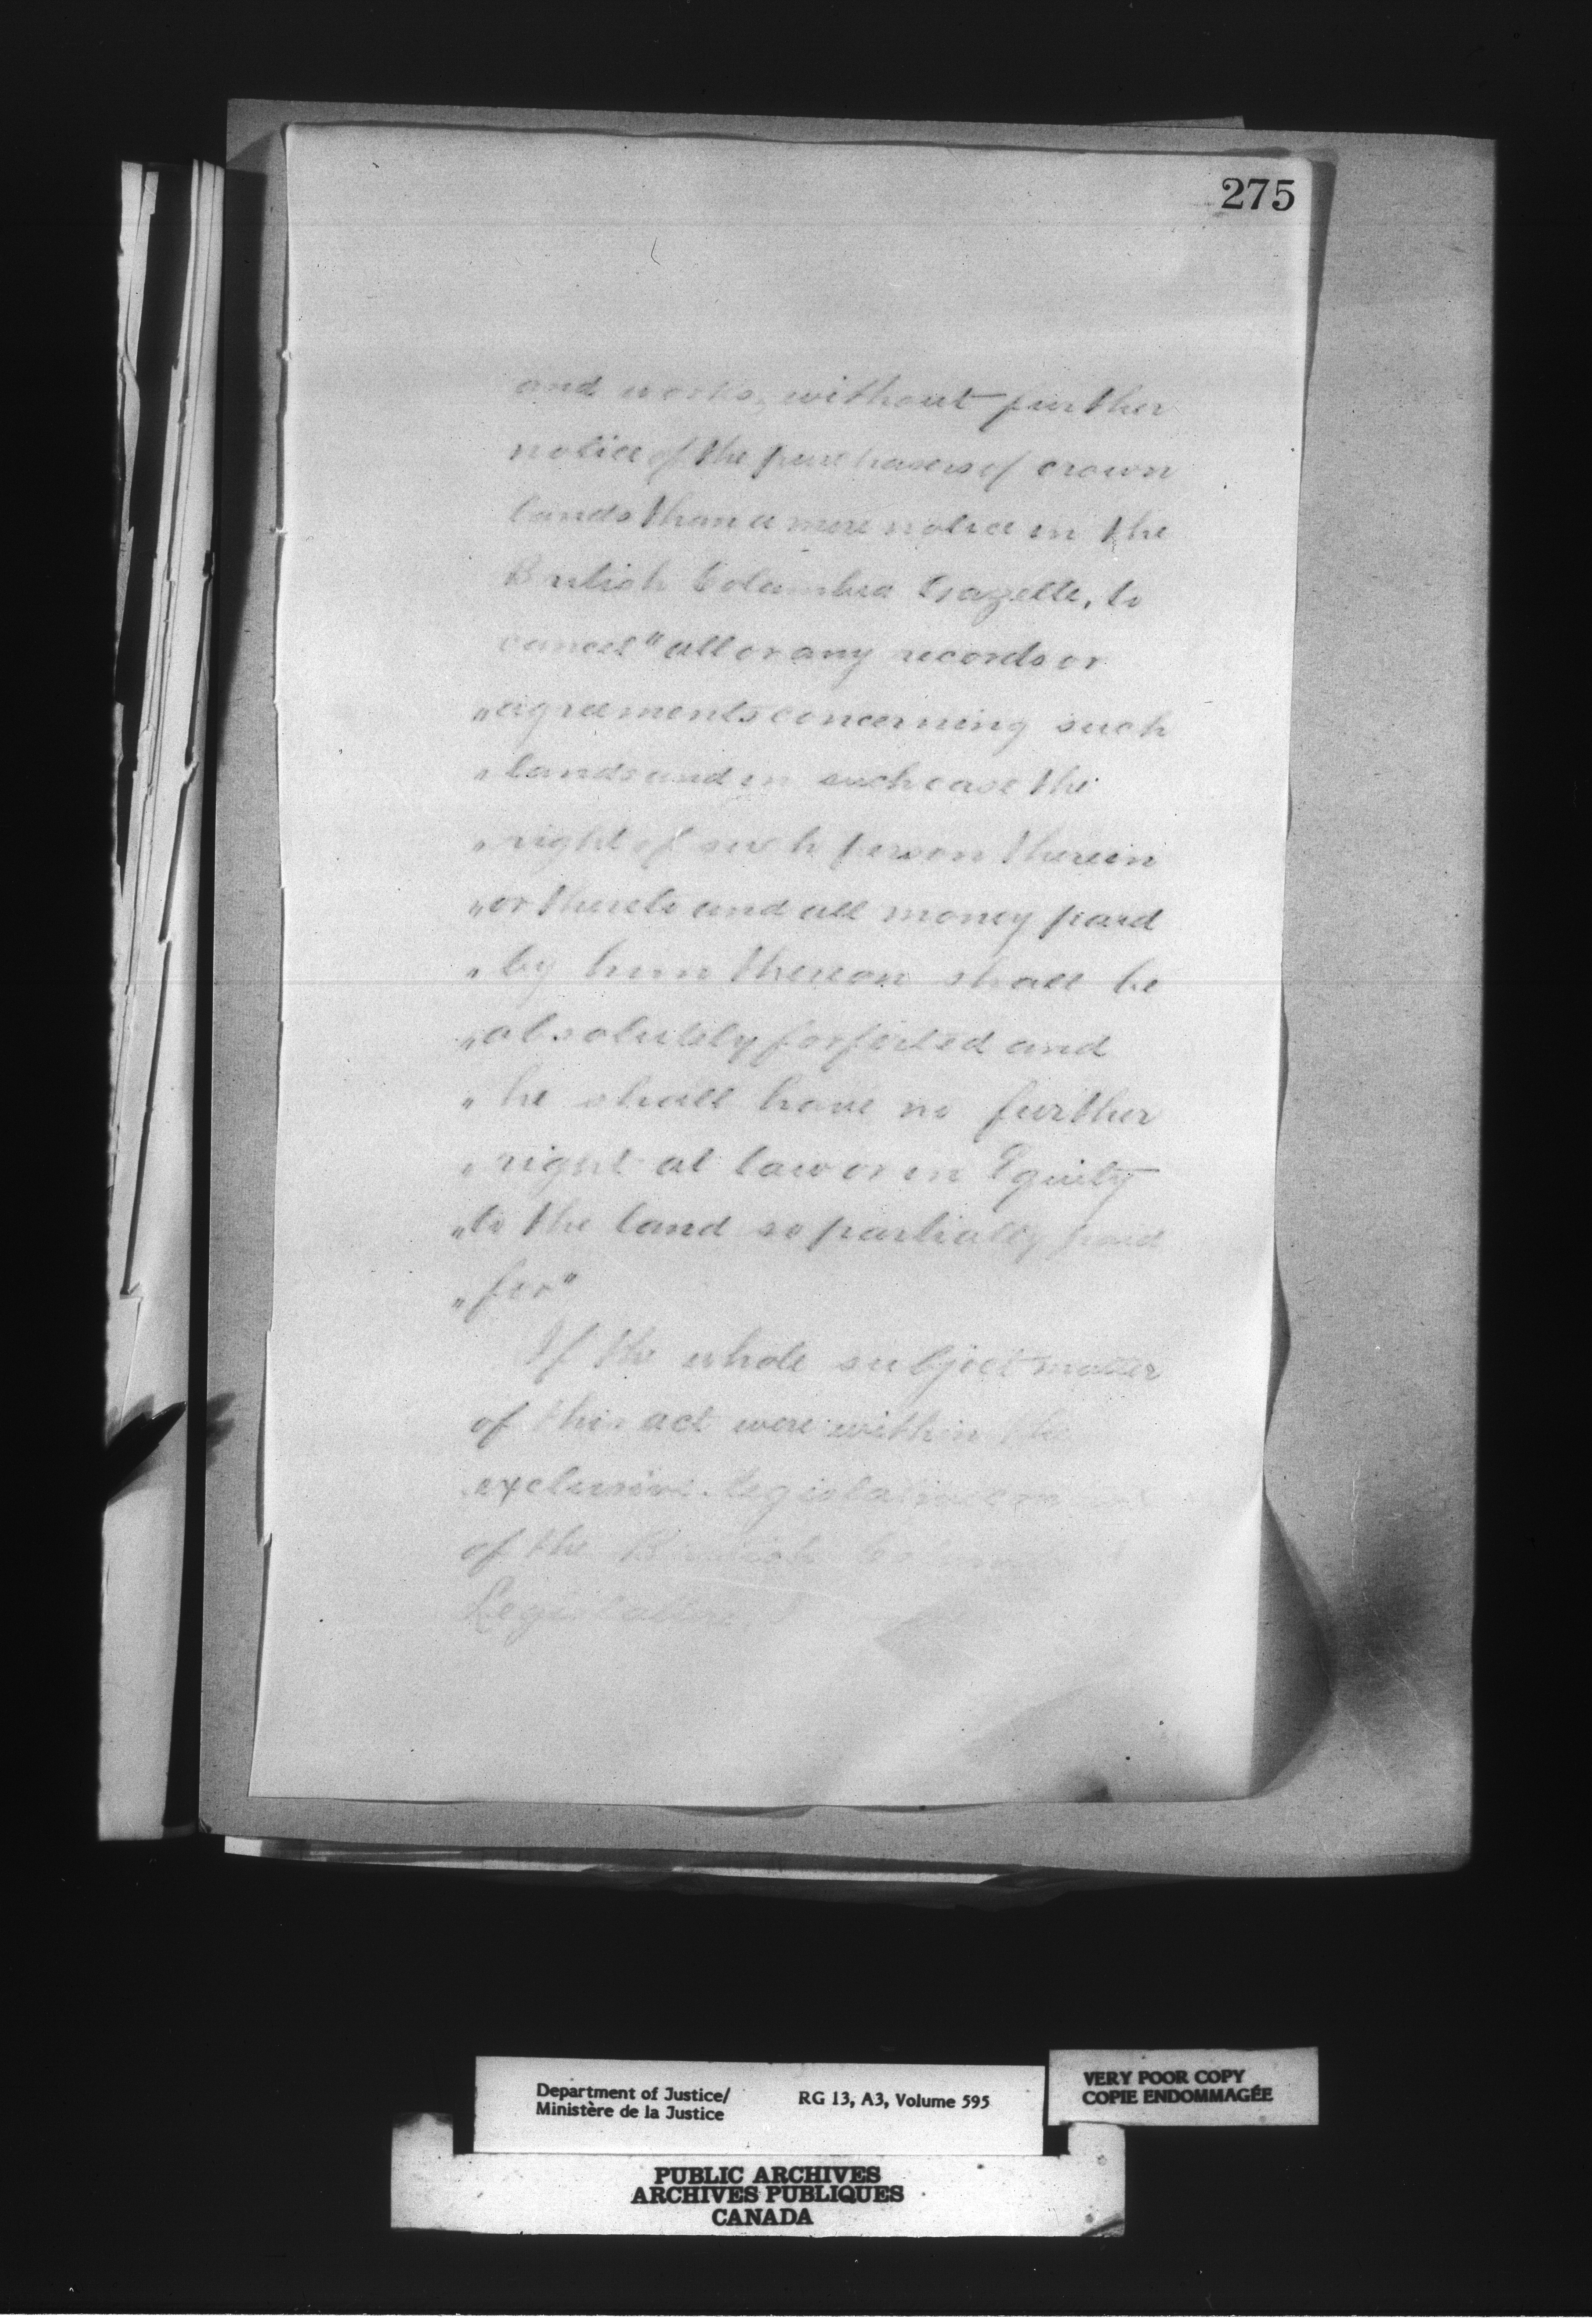 275
and works, without further
notice of the purchasers of crown
lands than a mere notice in the
British Columbia Gazette, to
cancel "all or any records or
"agreements concerning such
"lands and in such case the
"right of such person therein
"or thereto and all money paid
"by him thereon shall be
"absolutely forfeited and
"he shall have no further
"right at law or in Equity
"to the land so partially paid
"for"
If the whole subject matter
of this act were within the
exclusive legislative
of the British
Legislature I
Department of Justice/
Ministère de la Justice
RG 13, A3, Volume 595
VERY POOR COPY
COPIE ENDOMMAGÉE
PUBLIC ARCHIVES
ARCHIVES PUBLIQUES
CANADA